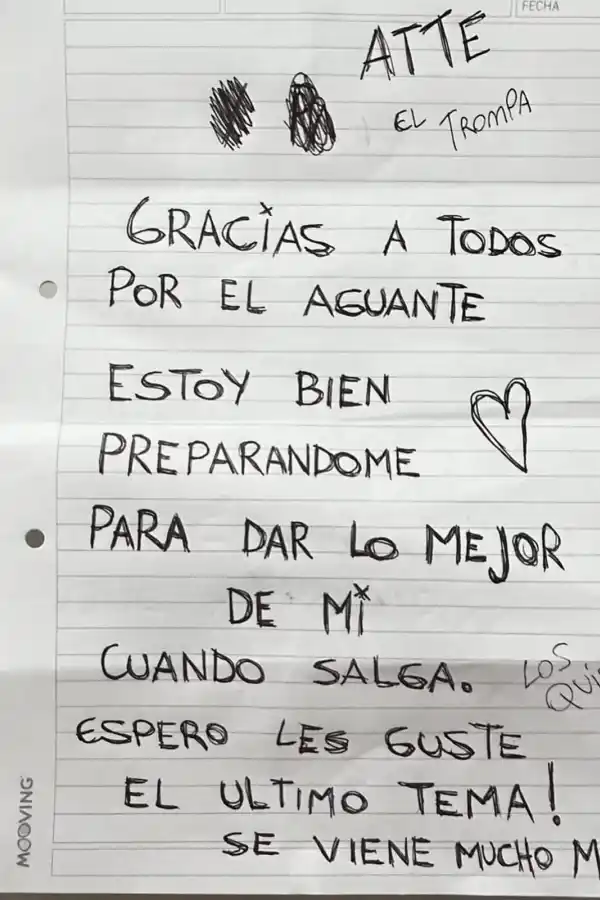 FECHA
ATTE
EL TROMPA
GRACIAS A TODOS
POR EL AGUANTE
ESTOY BIEN
PREPARANDOME
PARA DAR LO MEJOR
DE MI
CUANDO SALGA.
LOS
ESPERO LES GUSTE
EL ULTIMO TEMA!
SE VIENE MUCHO
MOOVING